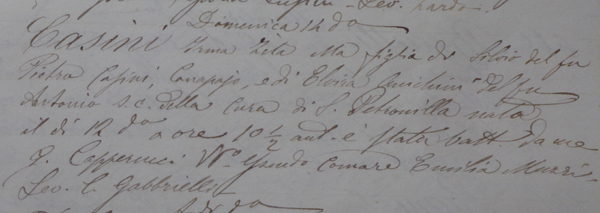 Leo. hardo.
Domenica 14 do
Casini Irma Zita Ma figlia di Silvio del fu
Pietro Casini, Canapajo, e di Eloisa del fu
Antonio S.C. della Cura di S. Petronilla nata
il di 12 do a ore 10 ½ ant. è stata batt. da me
J. Cappernecci Vo. essendo Comare Emilia Muzzi-
Leo. C. Gabbriello